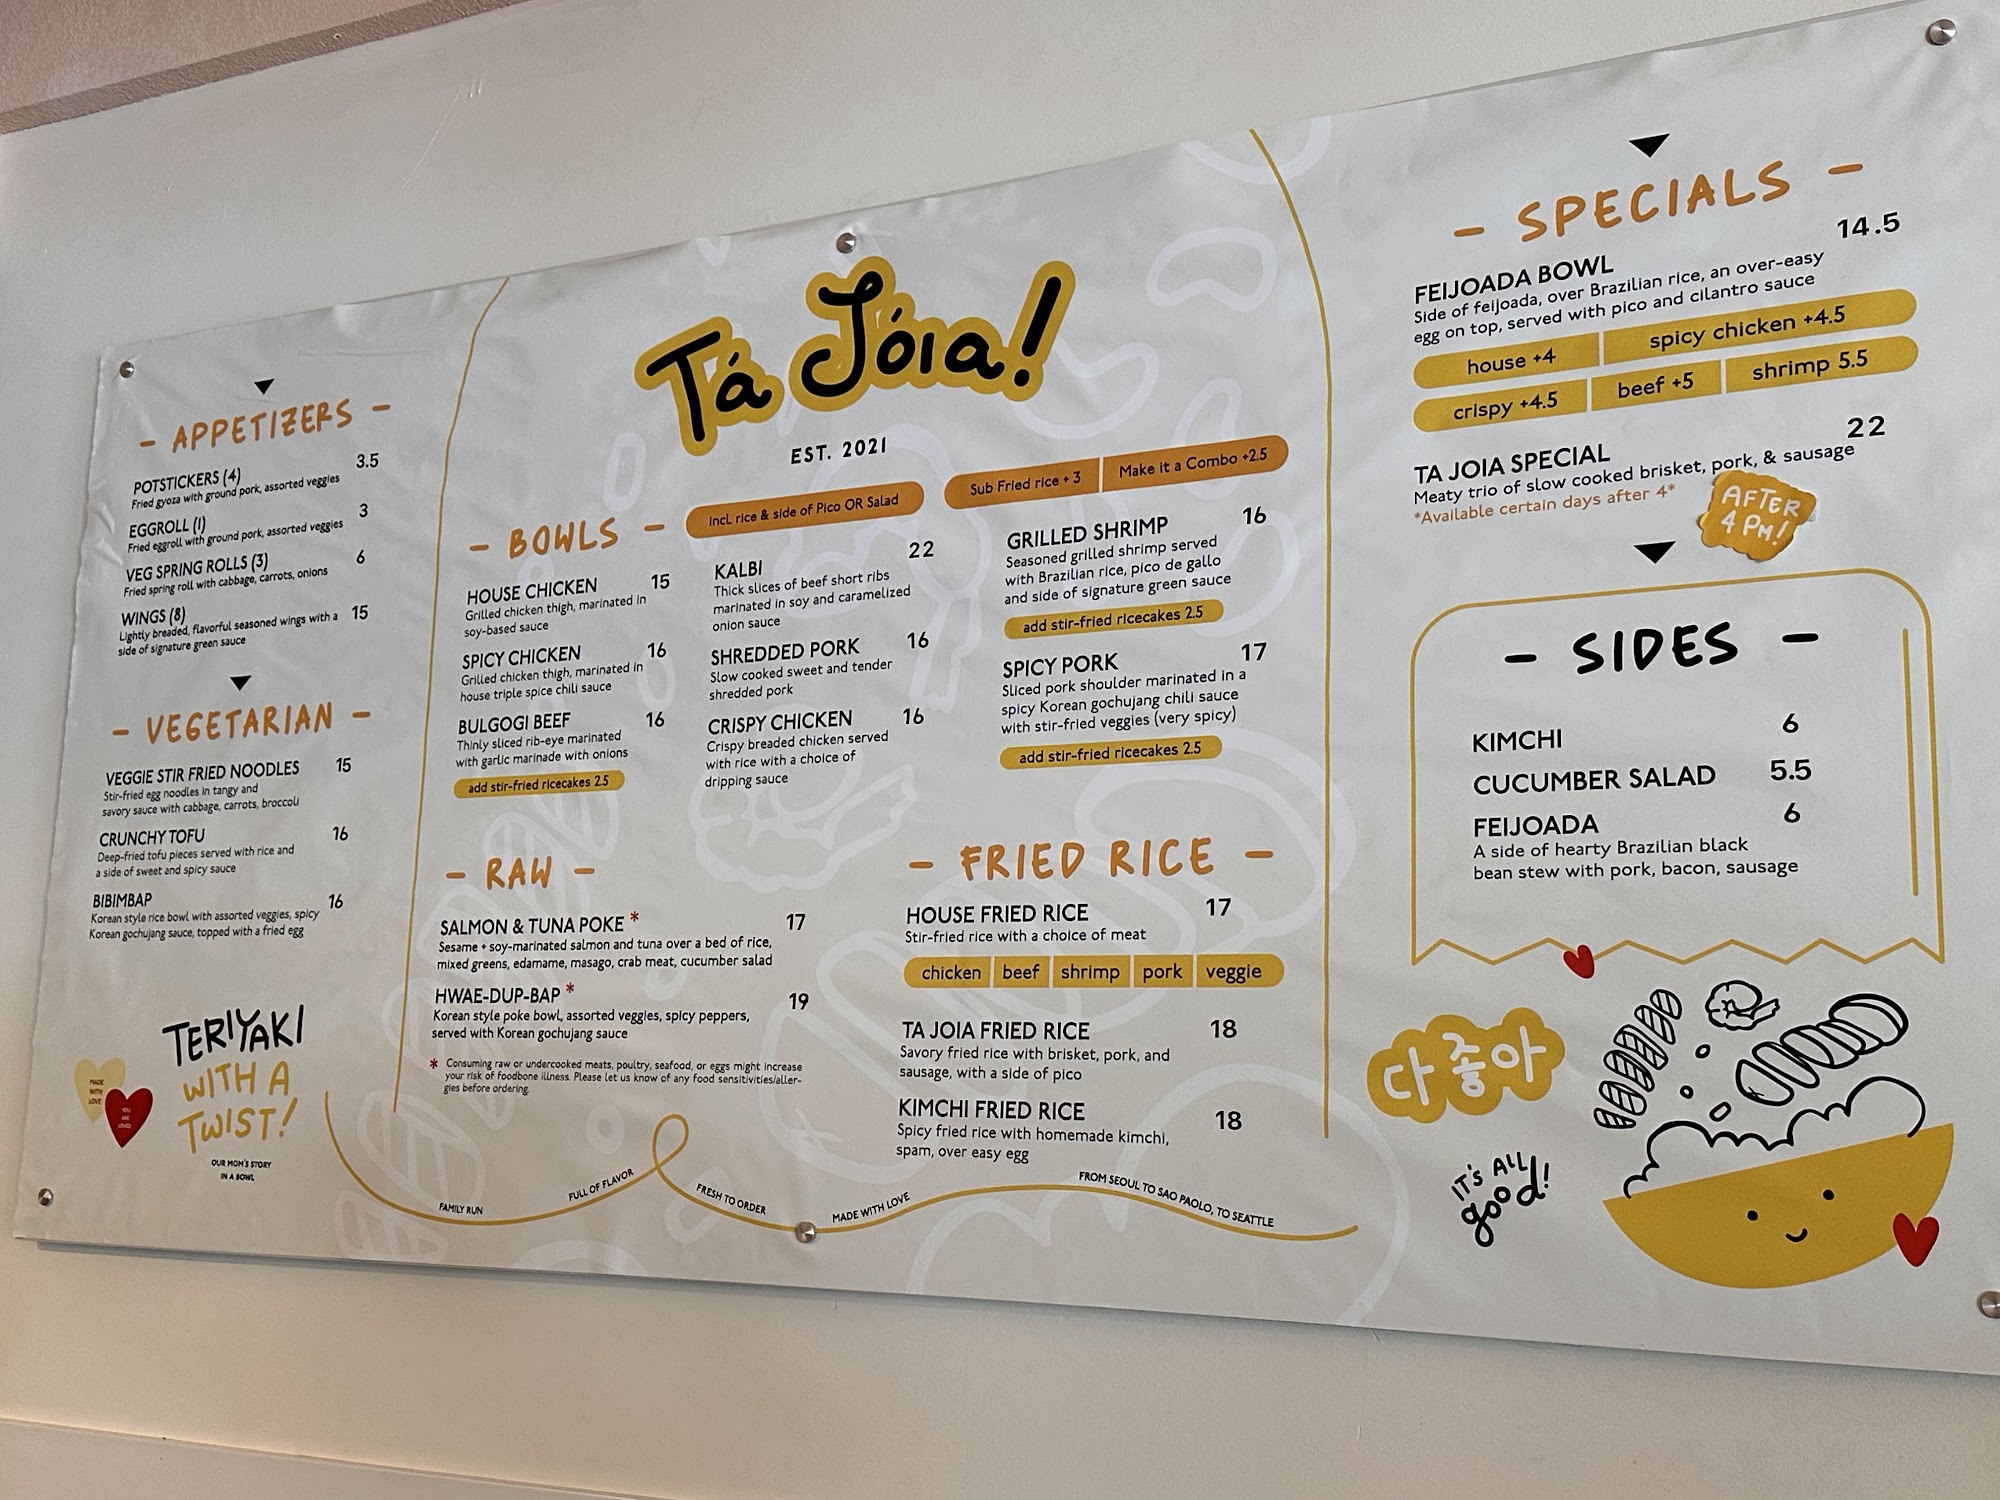 - APPETIZERS -
POTSTICKERS (4) 3.5
Fried gyoza with ground pork, assorted veggies
EGGROLL (1) 3
Fried eggroll with ground pork, assorted veggies
VEG SPRING ROLLS (3) 6
Fried spring roll with cabbage, carrots, onions
WINGS (8) 15
Lightly breaded, flavorful seasoned wings with a
side of signature green sauce
- VEGETARIAN -
VEGGIE STIR FRIED NOODLES 15
Stir-fried egg noodles in tangy and
savory sauce with cabbage, carrots, broccoli
CRUNCHY TOFU 16
Deep-fried tofu pieces served with rice and
a side of sweet and spicy sauce
BIBIMBAP 16
Korean style rice bowl with assorted veggies, spicy
Korean gochujang sauce, topped with a fried egg
MADE
WITH
LOVE
YOU
ARE
LOVED
TERIYAKI
WITH A
TWIST!
OUR MOM'S STORY
IN A BOWL
Tá Jóia!
EST. 2021
- BOWLS -
incl. rice & side of Pico OR Salad
Sub Fried rice + 3
Make it a Combo +2.5
HOUSE CHICKEN 15
Grilled chicken thigh, marinated in
soy-based sauce
SPICY CHICKEN 16
Grilled chicken thigh, marinated in
house triple spice chili sauce
BULGOGI BEEF 16
Thinly sliced rib-eye marinated
with garlic marinade with onions
add stir-fried ricecakes 2.5
KALBI 22
Thick slices of beef short ribs
marinated in soy and caramelized
onion sauce
SHREDDED PORK 16
Slow cooked sweet and tender
shredded pork
CRISPY CHICKEN 16
Crispy breaded chicken served
with rice with a choice of
dripping sauce
GRILLED SHRIMP 16
Seasoned grilled shrimp served
with Brazilian rice, pico de gallo
and side of signature green sauce
add stir-fried ricecakes 2.5
SPICY PORK 17
Sliced pork shoulder marinated in a
spicy Korean gochujang chili sauce
with stir-fried veggies (very spicy)
add stir-fried ricecakes 2.5
- RAW -
SALMON & TUNA POKE * 17
Sesame + soy-marinated salmon and tuna over a bed of rice,
mixed greens, edamame, masago, crab meat, cucumber salad
HWAE-DUP-BAP * 19
Korean style poke bowl, assorted veggies, spicy peppers,
served with Korean gochujang sauce
* Consuming raw or undercooked meats, poultry, seafood, or eggs might increase
your risk of foodbone illness. Please let us know of any food sensitivities/aller-
gies before ordering.
- FRIED RICE -
HOUSE FRIED RICE 17
Stir-fried rice with a choice of meat
chicken beef shrimp pork veggie
TA JOIA FRIED RICE 18
Savory fried rice with brisket, pork, and
sausage, with a side of pico
KIMCHI FRIED RICE 18
Spicy fried rice with homemade kimchi,
spam, over easy egg
FAMILY RUN
FULL OF FLAVOR
FRESH TO ORDER
MADE WITH LOVE
FROM SEOUL TO SAO PAOLO, TO SEATTLE
- SPECIALS -
FEIJOADA BOWL 14.5
Side of feijoada, over Brazilian rice, an over-easy
egg on top, served with pico and cilantro sauce
house +4 spicy chicken +4.5
crispy +4.5 beef +5 shrimp 5.5
TA JOIA SPECIAL 22
Meaty trio of slow cooked brisket, pork, & sausage
*Available certain days after 4*
AFTER
4 PM!
- SIDES -
KIMCHI 6
CUCUMBER SALAD 5.5
FEIJOADA 6
A side of hearty Brazilian black
bean stew with pork, bacon, sausage
다 좋아
IT'S ALL
good!